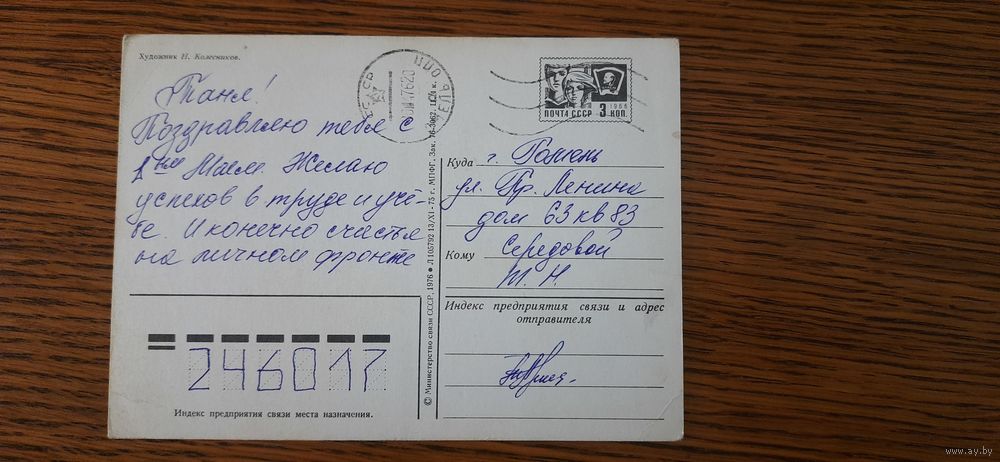 Художник Н. Колесников.
Таня!
Поздравляю тебя с
1 ым Маем. Желаю
успехов в труде и учё-
бе. И конечно счастья
на личном фронте
246017
Индекс предприятия связи места назначения.
© Министерство связи СССР, 1976 ● Л 105792 13/XI - 75 г. МПФГ. Зак. 76-3062. Ц. 4 к.
1966
ПОЧТА СССР 3 КОП.
Куда г. Гомель
ул. Пр. Ленина
дом 63 кв 83
Кому Середовой
Т. Н.
Индекс предприятия связи и адрес
отправителя
www.ay.by